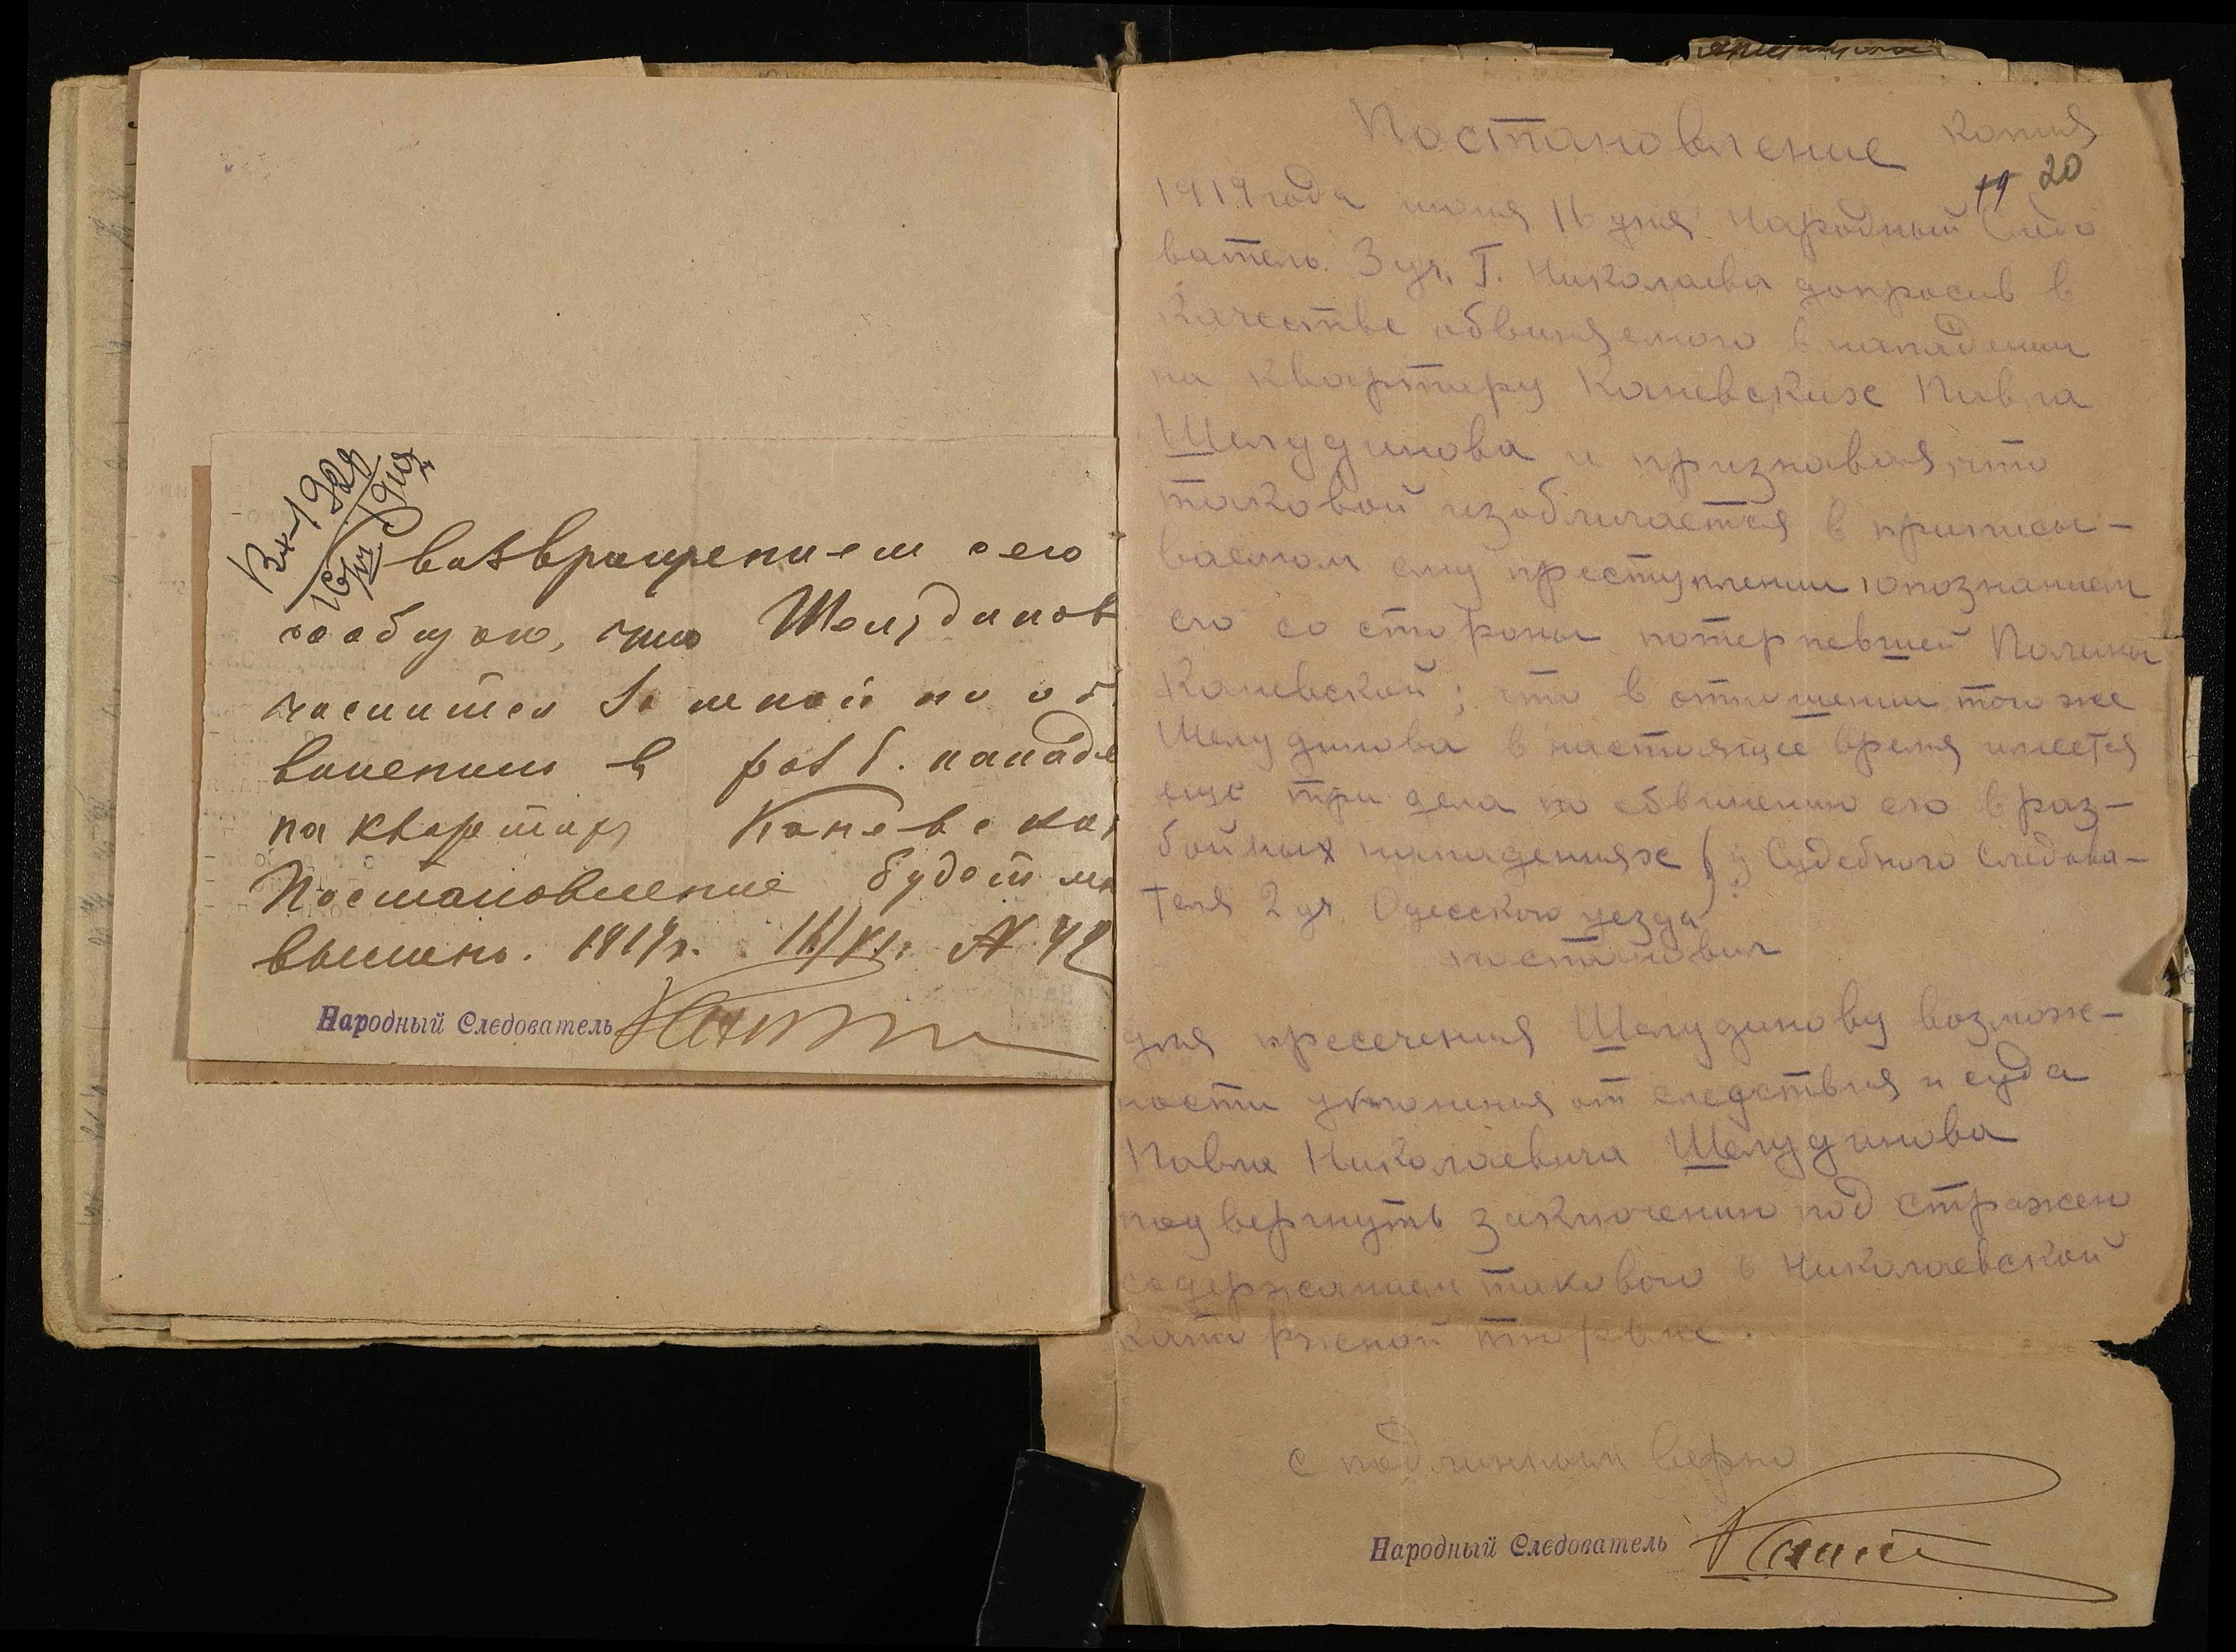 Вх-1928
16/VI 1919
С возвращением сего
сообщаю, что Шелудинов
числится за мной по об
винению в разб. нападе
на квартиру Каневских
Постановление будет
выслано. 1919 г. 16/VI. N
Народный Следователь
Копия
Постановление
19 20
1919 года июня 16 дня Народный Следо
ватель 3 уч. г. Николаева допросив в
качестве обвиняемого в нападении
на квартиру Каневских Павла
Шелудинова и признавая, что
таковой изобличается в приписы-
ваемом ему преступлении опознанием
его со стороны потерпевшей Полины
Каневской; что в отношении того же
Шелудинова в настоящее время имеется
еще три дела по обвинению его в раз-
бойных нападениях (у Судебного Следова-
теля 2 уч. Одесского уезда)
постановил
для пресечения Шелудинову возмож-
ности уклонения от следствия и суда
Павла Николаевича Шелудинова
подвергнуть заключению под стражей
содержанием такового в Николаевской
каторжной тюрьме.
с подлинным верно
Народный Следователь